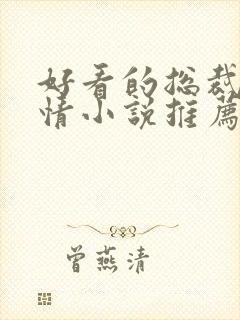 好看的总裁
情小说推薦
曾燕清